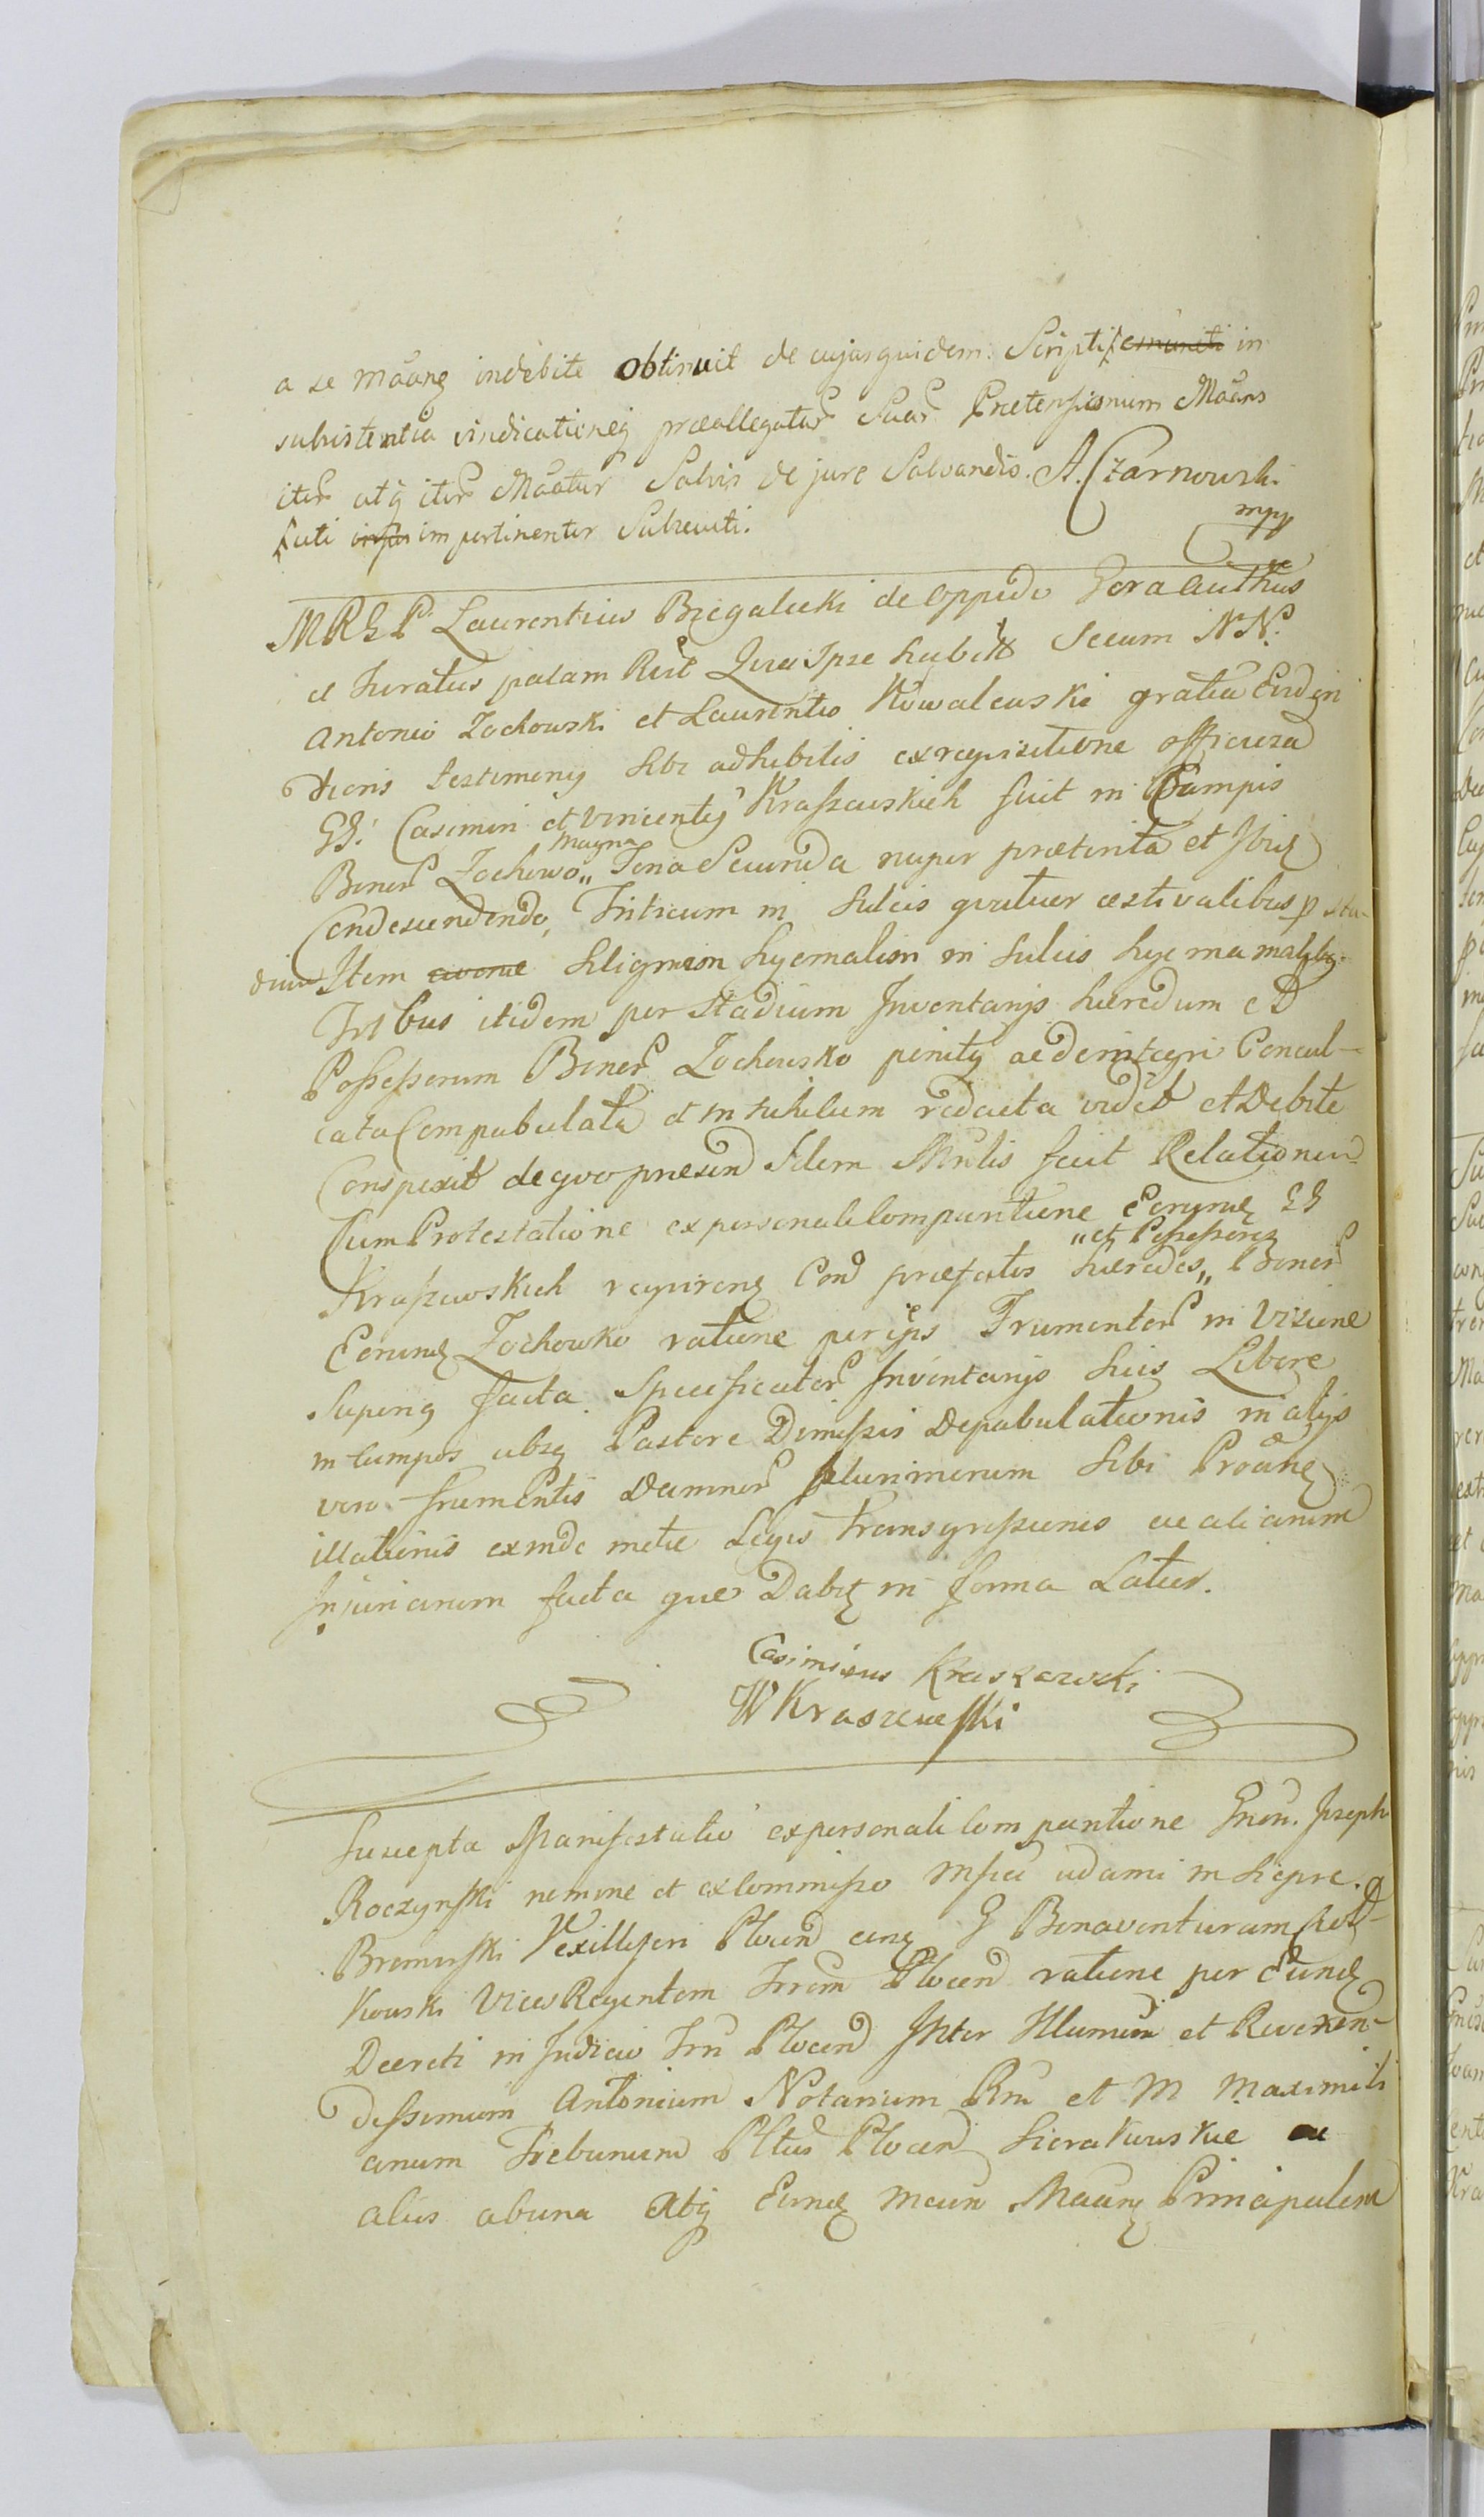 a se Mãang indebite obtinuit de cujusquidem Scripti in
subsistentia vindicationeq praeallegatar Suar Praetensionum Mãans
iter atq iter Mãatur Salvis de jure Salvandis. A. Czarnowski
mpp
uti impertinenter Subsecuti.
MRGP Laurentius Biegalscki de Oppido Gora authus
et Juratus palam Rcit Quia Ipse habitis Secum NN.
Antonio Zochowski et Laurentio Kowalewski gratia Evden
tioris testimonij sibi adhibitis ex requisitione officiosa
GG. Casimiri et Vincentij Kraszewskich fuit in Campis
Bonor Zochowo „ Magna Secunda nuper praeterita et Ibiq
Condescendendo, Triticum in Sulcis quatuor aestivalibus p sta-
dium Item Siligmen hyemalem in Sulcis hyemamalibq
Tribus itidem per Stadium Inventarijs haeredum et
Possessorum Bonor Zochowsko penitq ac de integri Concul-
cata Compabulata et in nihilum redacta vidit et Debite
Conspexit de quo praesen Idem Mnlis fecit Relationem
Cum Protestatione ex personali Comparitione Eorumq GG
Kraszewskich requirenq Con praefatos haeredes „ et Possessores Bonor
Eorumq Zochowko ratione per ipsos Frumentor in Visione
Superiq facta Specificator Inventarijs Suis Libere
in Campos absq Pastore Dimissis Depabulationis in alijs
vero frumentis Damnor plurimorum Sibi Proãnq
illationis exinde metu Legis transgressionis ac aliarum
Injuriarum facta que Dabiq in forma Latior.
Casimirus Kraszewski
W Kraszewski
Suscepta Manifestatio ex personali Comparitione Gnou. Joseph
Roczynski nomine et ex Commisso Mfici Adami in Siepre
Bromirski Vexilliferi Plocen conq G Bonaventuram
kowski Vices Regentem Trrm Plocen ratione per Eunq
Decreti in Judicio Trri Plocen Inter Illumum et Reveren-
dissimum Antonium Notarium Rni et M Maximili
anum Tribunum Pltus Plocen Sierakowskie
aliis ab una Atq Eunq Mãun Mãanq Principalem